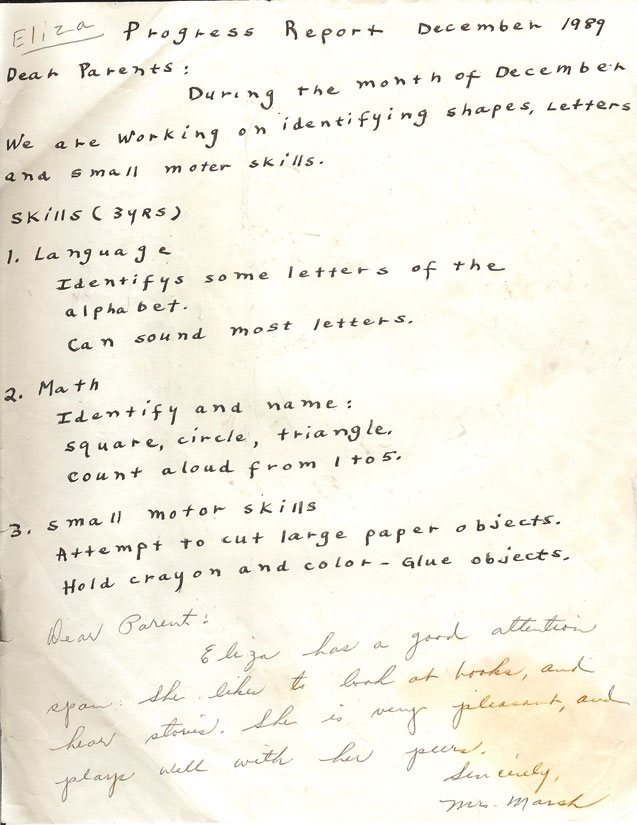 Eliza Progress Report December 1989
Dear Parents:
During the month of December
We are working on identifying shapes, Letters
and small moter skills.
Skills (3YRS)
1. Language
Identifys some letters of the
alphabet.
Can sound most letters.
2. Math
Identify and name:
square, circle, triangle.
count aloud from 1 to 5.
3. small motor skills
Attempt to cut large paper objects.
Hold crayon and color - Glue objects.
Dear Parent:
Eliza has a good attention
span. She likes to look at books, and
hear stories. She is very pleasant, and
plays well with her peers.
Sincerely,
Mrs. Marsh